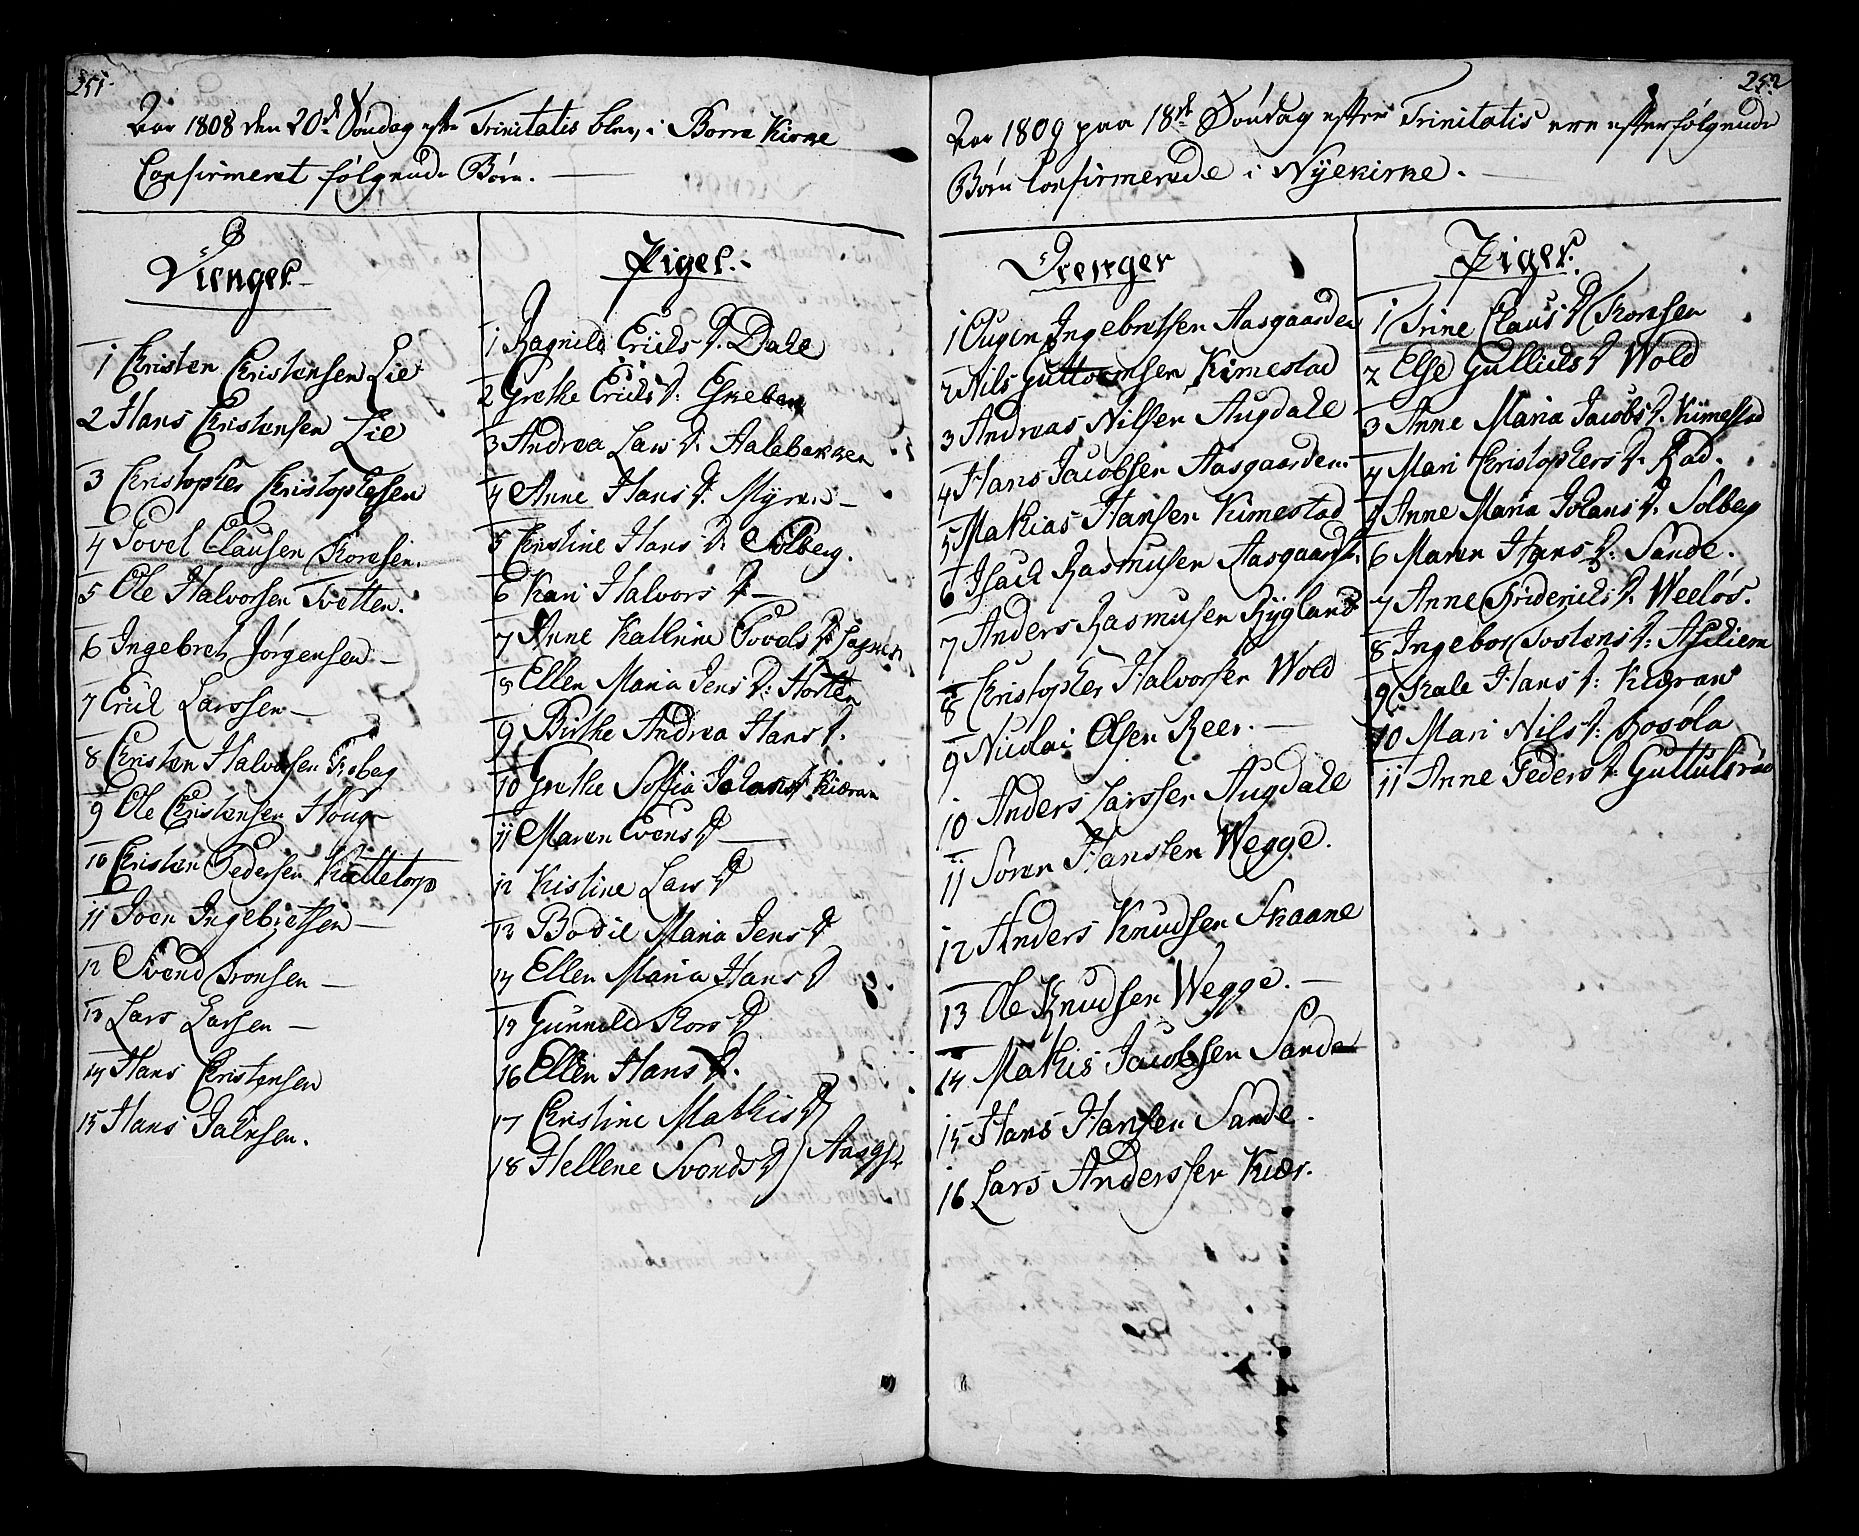 251.
Aar 1808 den 20de Søndag efter Trinitatis blev i Borre Kirke
Confirmeret følgende Børn.
Drenger.
1 Christen Christensen Lie
2 Hans Christensen Lie
3 Christopher Christophersen
4 Povel Clausen
5 Ole Halvorsen Tvetten.
6 Ingebret Jørgensen
7 Erich Larssen
8 Christen Halvorsen
9 Ole Christensen Houg
10 Christen Pedersen
11 Joen Ingebretsen
12 Svend Tronsen
13 Lars Larsen
14 Hans Christensen
15 Hans
Piger.
1 Ragnild Erichs D. Dahl
2 Grethe Erichs D:
3 Andrea Lars D: Aalebakken
4 Anne Hans D. Myren
5 Christine Hans D: Solberg.
6 Kari Halvors D
7 Anne Kathrine Povels D:
8 Ellen Maria Jens D: Horten
9 Birthe Andrea Hans D.
10 Grethe Soffia
11 Maren Evens D
12 Kistine Lars D
13 Bodil Maria Jens D
14 Ellen Maria Hans D
15 Gunnild D
16 Ellen Hans D.
17 Christine Mathis D
18 Hellene Svends D
252
Aar 1809 paa 18de Søndag efter Trinitatis ere efterfølgende
Børn Confirmerede i Nyekirke.
Drenger
1 Ingebretsen Aasgaarden
2 Nils Guttormsen Kimestad
3 Andreas Nilsen Augdahl
4 Hans Jacobsen Aasgaarden
5 Mathias Hansen Kimestad
6 Isach Rasmusen
7 Anders Rasmusen Rygland
8 Christopher Halvorsen Wold
9 Nicolai Olsen Reer.
10 Anders Larssen Augdahl
11 Søren Hansen Wegge.
12 Anders Knudsen Skaane
13 Ole Knudsen Wegge.
14 Mathis Jacobsen Sande
15 Hans Hansen Sande.
16 Lars Anderssen Kiær.
Piger.
1 Trine Claus D
2 Else Gullichs D Wold
3 Anne Maria Jacobs D. Kimestad
4 Mari Christophers D. Rød.
5 Anne Maria Johans D. Solberg
6 Maren Hans D: Sande.
7 Anne Friderichs D.
8 Ingebor Tostens D:
9 Hans D:
10 Mari Nils D:
11 Anne Peders D.